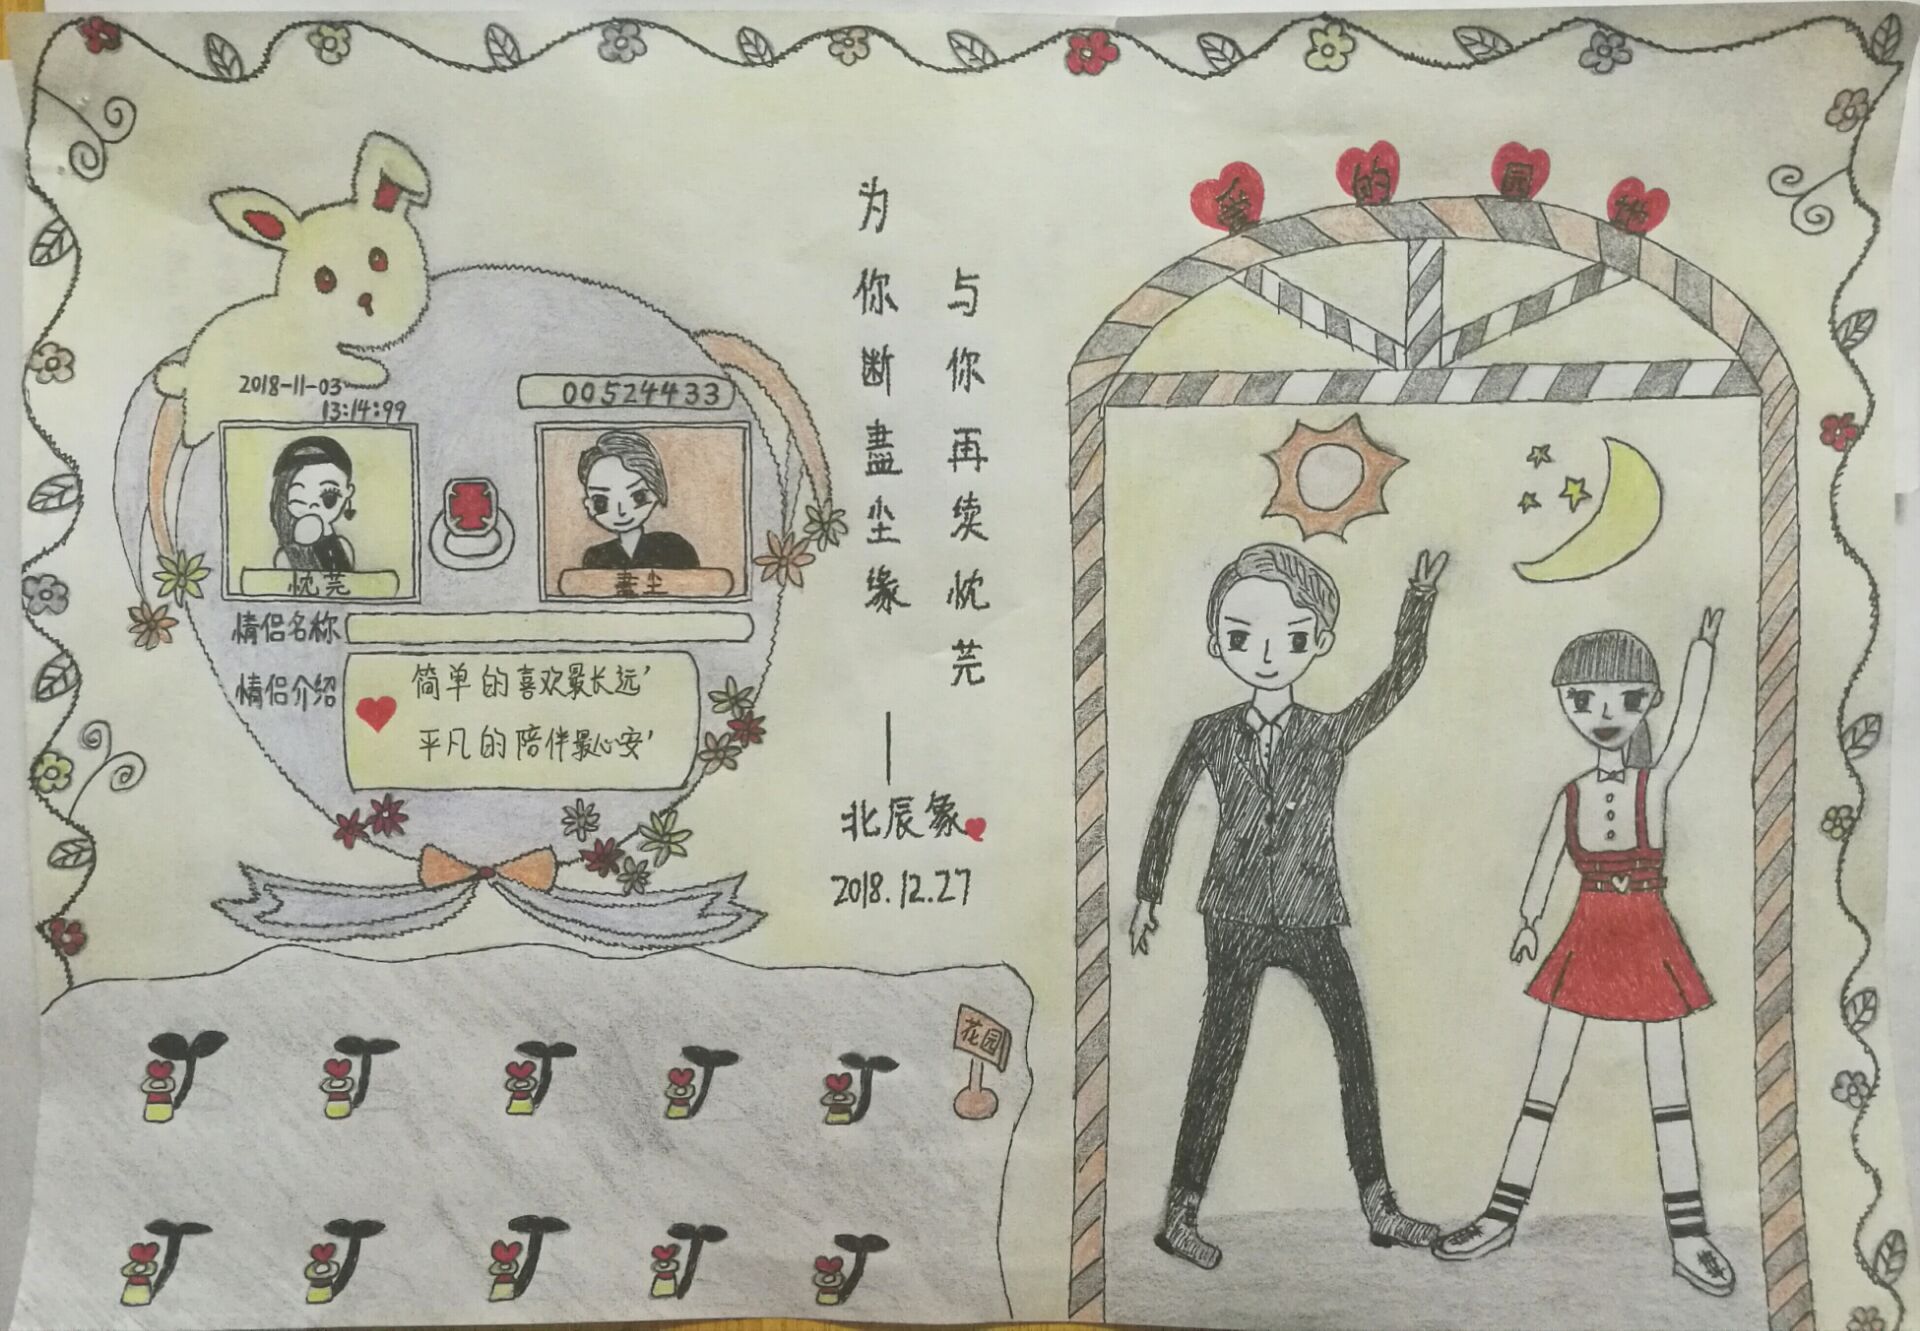 爱的园地
2018-11-03
13:14:99
00524433
忱芫
盡尘
情侣名称
情侣介绍
简单的喜欢最长远'
平凡的陪伴最心安'
为你断盡尘缘
与你再续忱芫
—北辰象
2018.12.27
花园